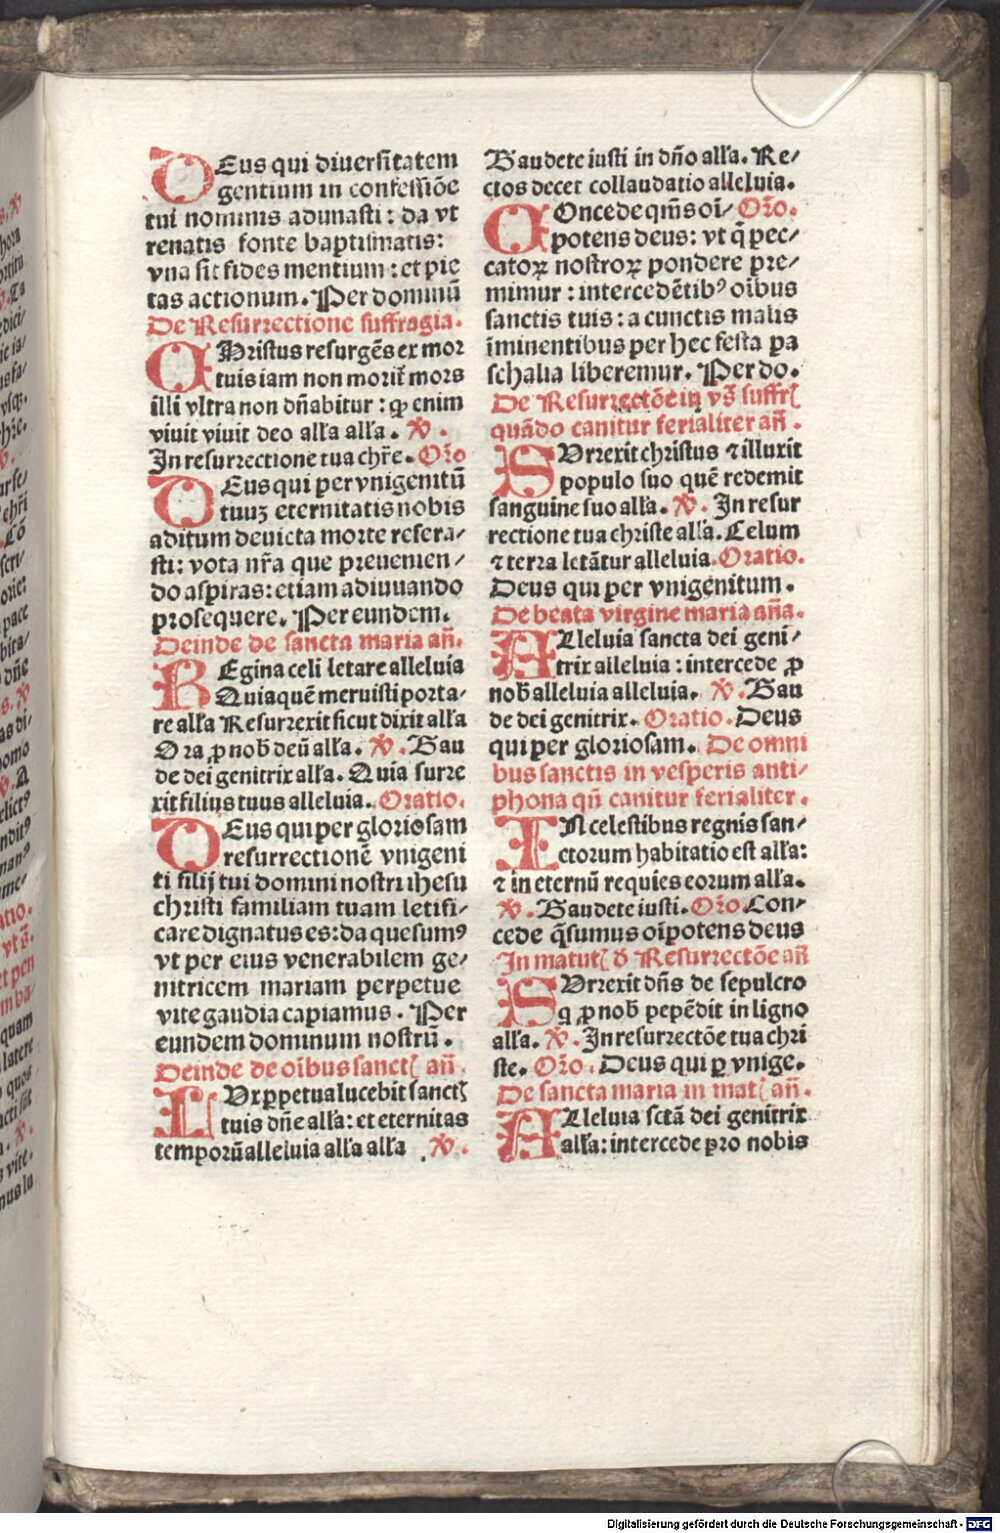 DEus qui diuersitatem
gentium in confessiõe
tui nominis adunasti: da vt
renatis fonte baptismatis:
vna sit fides mentium: et pie
tas actionum. Per dominũ
De Resurrectione suffragia.
CHristus resurgẽs ex mor
tuis iam non morit᷑ mors
illi vltra non dñabitur: ꝙ enim
viuit viuit deo alľa alľa. ℣.
In resurrectione tua chr̃e. Or̃o
DEus qui per vnigenitũ
tuuʒ eternitatis nobis
aditum deuicta morte resera⸗
sti: vota nr̃a que preuenien⸗
do aspiras: etiam adiuuando
prosequere. Per eundem.
Deinde de sancta maria añ.
REgina celi letare alleluia
Quia quẽ meruisti porta⸗
re alľa Resurrexit sicut dixit alľa
Ora ꝓ nob̃ deũ alľa. ℣. Gau
de dei genitrix alľa. Quia surre
xit filius tuus alleluia. Oratio.
DEus qui per gloriosam
resurrectionẽ vnigeni
ti filij tui domini nostri ihesu
christi familiam tuam letifi⸗
care dignatus es: da quesumꝰ
vt per eius venerabilem ge⸗
nitricem mariam perpetue
vite gaudia capiamus. Per
eundem dominum nostrũ.
Deinde de oĩbus sanctꝭ añ.
LUx ꝑpetua lucebit sanctꝭ
tuis dñe alľa: et eternitas
temporũ alleluia alľa alľa. ℣.
Gaudete iusti in dño alľa. Re⸗
ctos decet collaudatio alleluia.
COncede qm̃s oĩ⸗ Or̃o.
potens deus: vt q̃ pec⸗
catoꝝ nostroꝝ pondere pre⸗
mimur: intercedẽtibꝰ oĩbus
sanctis tuis: a cunctis malis
ĩminentibus per hec festa pa
schalia liberemur. Per do.
De Resurrectõe in vs̃ suffrꝭ
quãdo canitur ferialiter añ.
SUrrexit christus ⁊ illuxit
populo suo quẽ redemit
sanguine suo alľa. ℣. In resur
rectione tua christe alľa. Celum
⁊ terra letãtur alleluia. Oratio.
Deus qui per vnigenitum.
De beata virgine maria aña.
ALleluia sancta dei geni⸗
trix alleluia: intercede ꝓ
nob̃ alleluia alleluia. ℣. Gau
de dei genitrix. Oratio. Deus
qui per gloriosam. De omni
bus sanctis in vesperis anti⸗
phona qñ canitur ferialiter.
IN celestibus regnis san⸗
ctorum habitatio est alľa:
⁊ in eternũ requies eorum alľa.
℣. Gaudete iusti. Or̃o. Con⸗
cede q̃sumus oĩpotens deus
In matutꝭ d̓ Resurrectõe añ
SUrrexit dñs de sepulcro
q ꝓ nob̃ pepẽdit in ligno
alľa. ℣. In resurrectõe tua chri
ste. Or̃o. Deus qui ꝑ vnige.
De sancta maria in matꝭ añ.
ALleluia sctã dei genitrix
alľa: intercede pro nobis
Digitalisierung gefördert durch die Deutsche Forschungsgemeinschaft - DFG